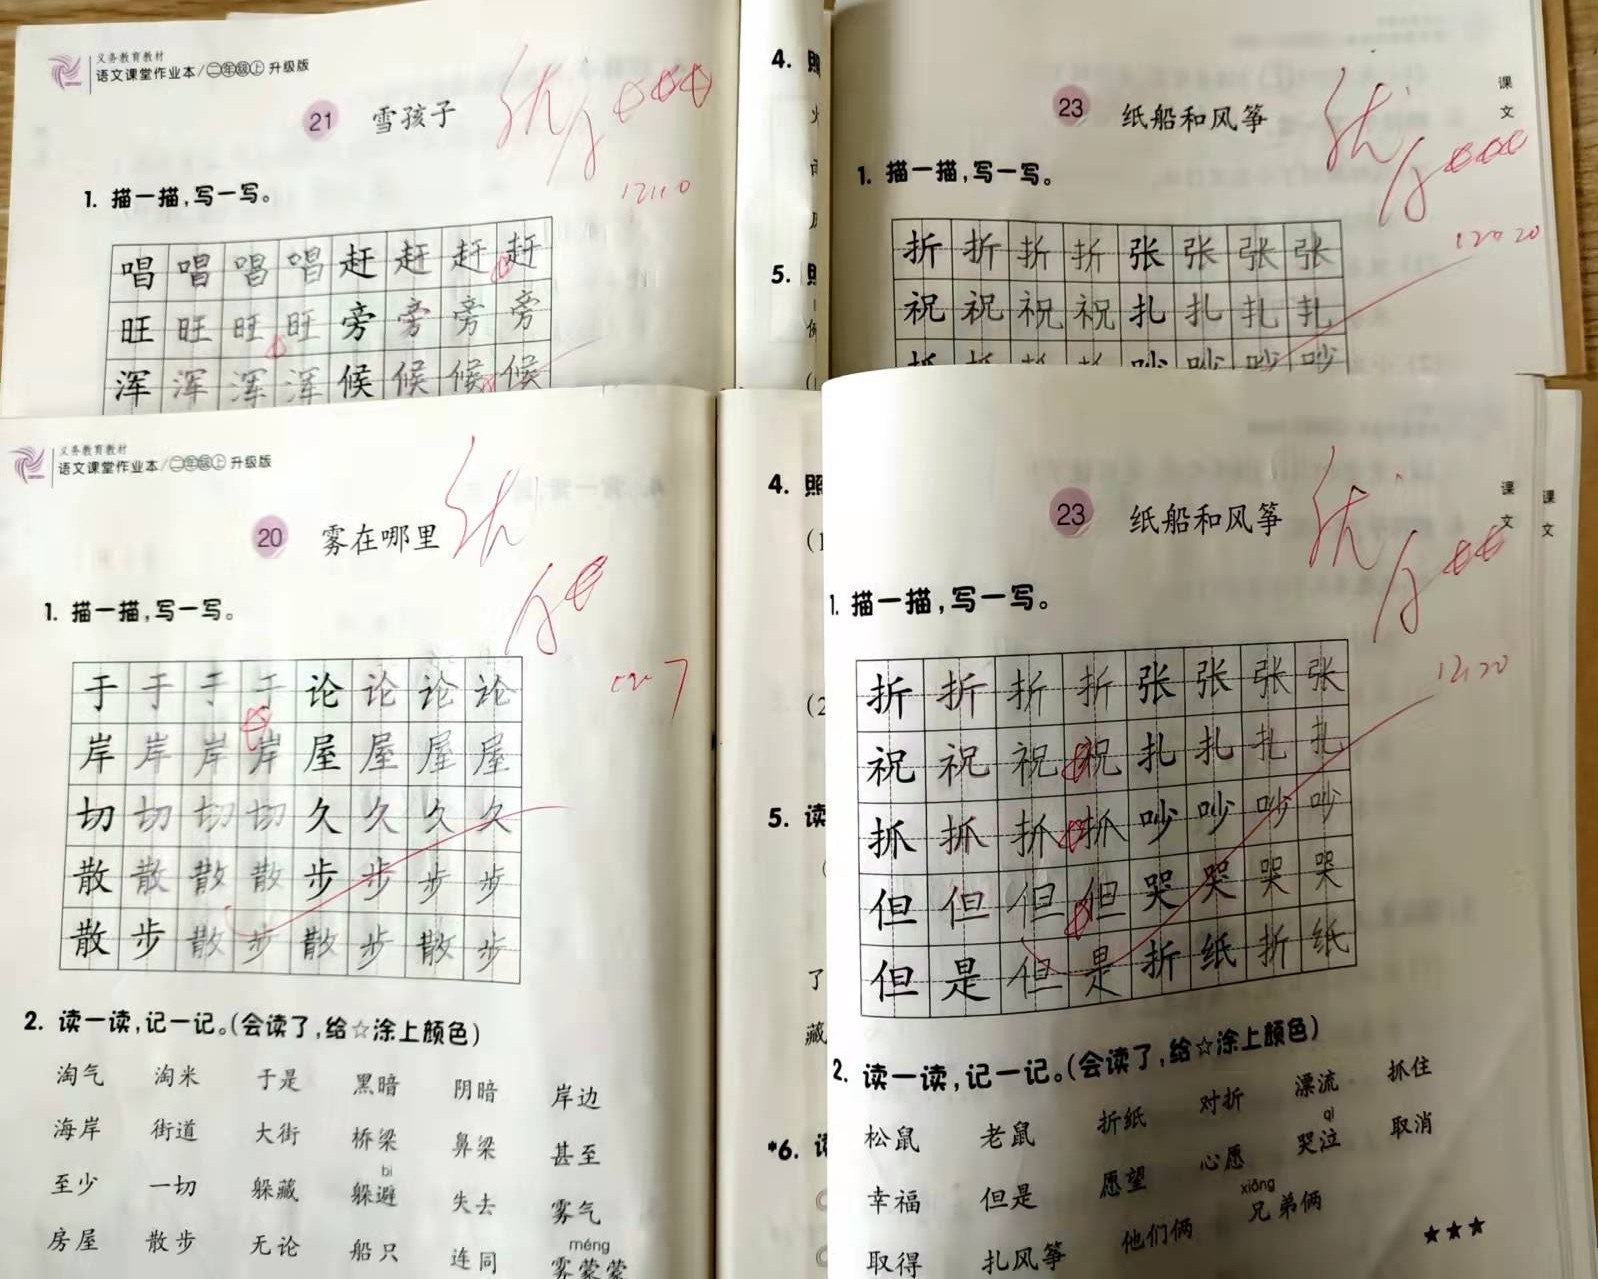 义务教育教材
语文课堂作业本/二年级上 升级版
21 雪孩子
优
12.10
1. 描一描,写一写。
唱 唱 唱 唱 赶 赶 赶 赶
旺 旺 旺 旺 旁 旁 旁 旁
浑 浑 浑 浑 候 候 候 候
4. 照
5.
课文
23 纸船和风筝
优
1. 描一描,写一写。
折 折 折 折 张 张 张 张
祝 祝 祝 祝 扎 扎 扎 扎
抓 抓 抓 抓 吵 吵 吵 吵
义务教育教材
语文课堂作业本/二年级上 升级版
20 雾在哪里
优
1. 描一描,写一写。
于 于 于 于 论 论 论 论
岸 岸 岸 岸 屋 屋 屋 屋
切 切 切 切 久 久 久 久
散 散 散 散 步 步 步 步
散 步 散 步 散 步 散 步
2. 读一读,记一记。(会读了,给☆涂上颜色)
淘气 淘米 于是 黑暗 阴暗 岸边
海岸 街道 大街 桥梁 鼻梁 甚至
bì
至少 一切 躲藏 躲避 失去 雾气
méng
房屋 散步 无论 船只 连同 雾蒙蒙
4. 照
(1
(2
5. 读
(
了
藏
*6. 读
课文
课文
23 纸船和风筝
优
12.20
1. 描一描,写一写。
折 折 折 折 张 张 张 张
祝 祝 祝 祝 扎 扎 扎 扎
抓 抓 抓 抓 吵 吵 吵 吵
但 但 但 但 哭 哭 哭 哭
但 是 但 是 折 纸 折 纸
2. 读一读,记一记。(会读了,给☆涂上颜色)
松鼠 老鼠 折纸 对折 漂流 抓住
qì
幸福 但是 愿望 心愿 哭泣 取消
xiōng
取得 扎风筝 他们俩 兄弟俩
★★★